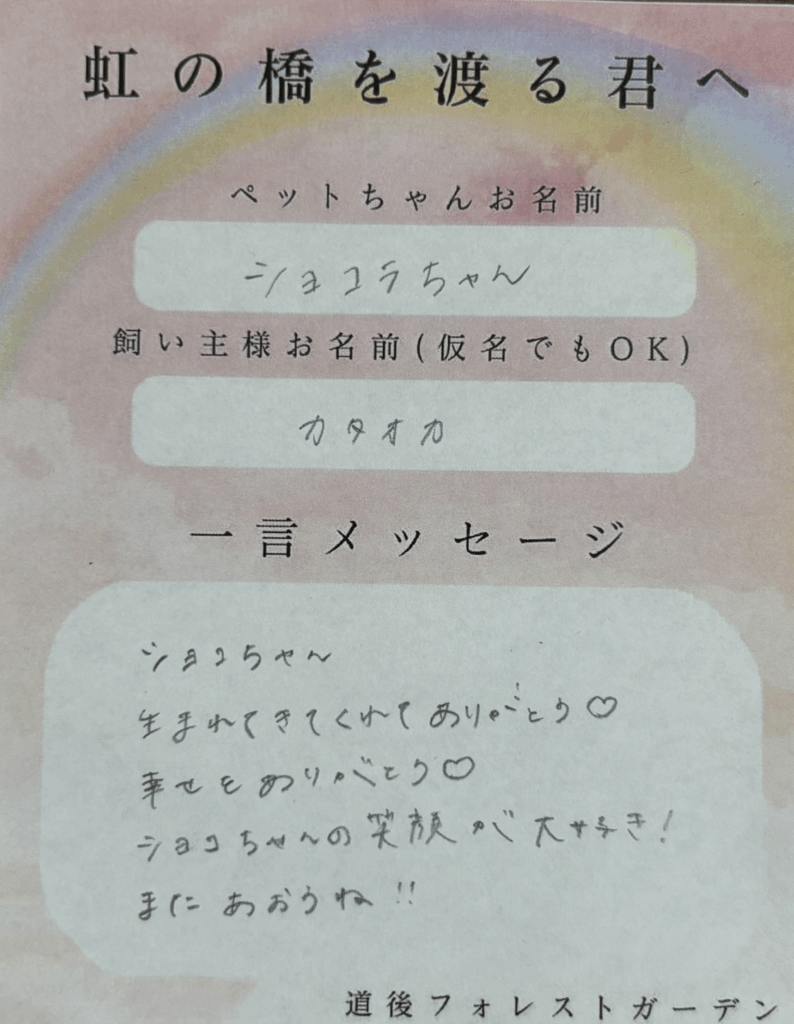 虹の橋を渡る君へ
ペットちゃんお名前
ショコラちゃん
飼い主様お名前(仮名でもOK)
カタオカ
一言メッセージ
ショコちゃん
生まれてきてくれてありがとう♡
幸せをありがとう♡
ショコちゃんの笑顔が大好き!
またあおうね!!
道後フォレストガーデン